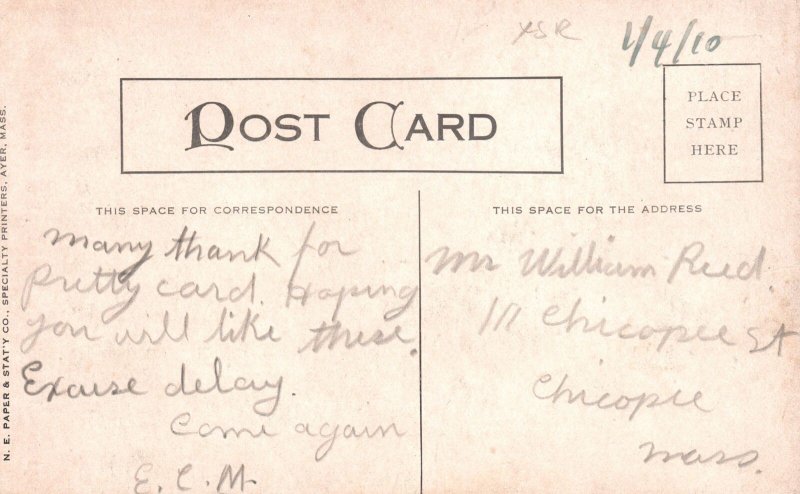 XSR
1/4/10
POST CARD
PLACE
STAMP
HERE
THIS SPACE FOR CORRESPONDENCE
THIS SPACE FOR THE ADDRESS
Many thank for
pretty card. Hoping
you will like these.
Excuse delay.
Come again
E. C. M.
Mr William Reed.
111 Chicopee St
Chicopee
Mass.
N. E. PAPER & STAT'Y CO., SPECIALTY PRINTERS, AYER, MASS.